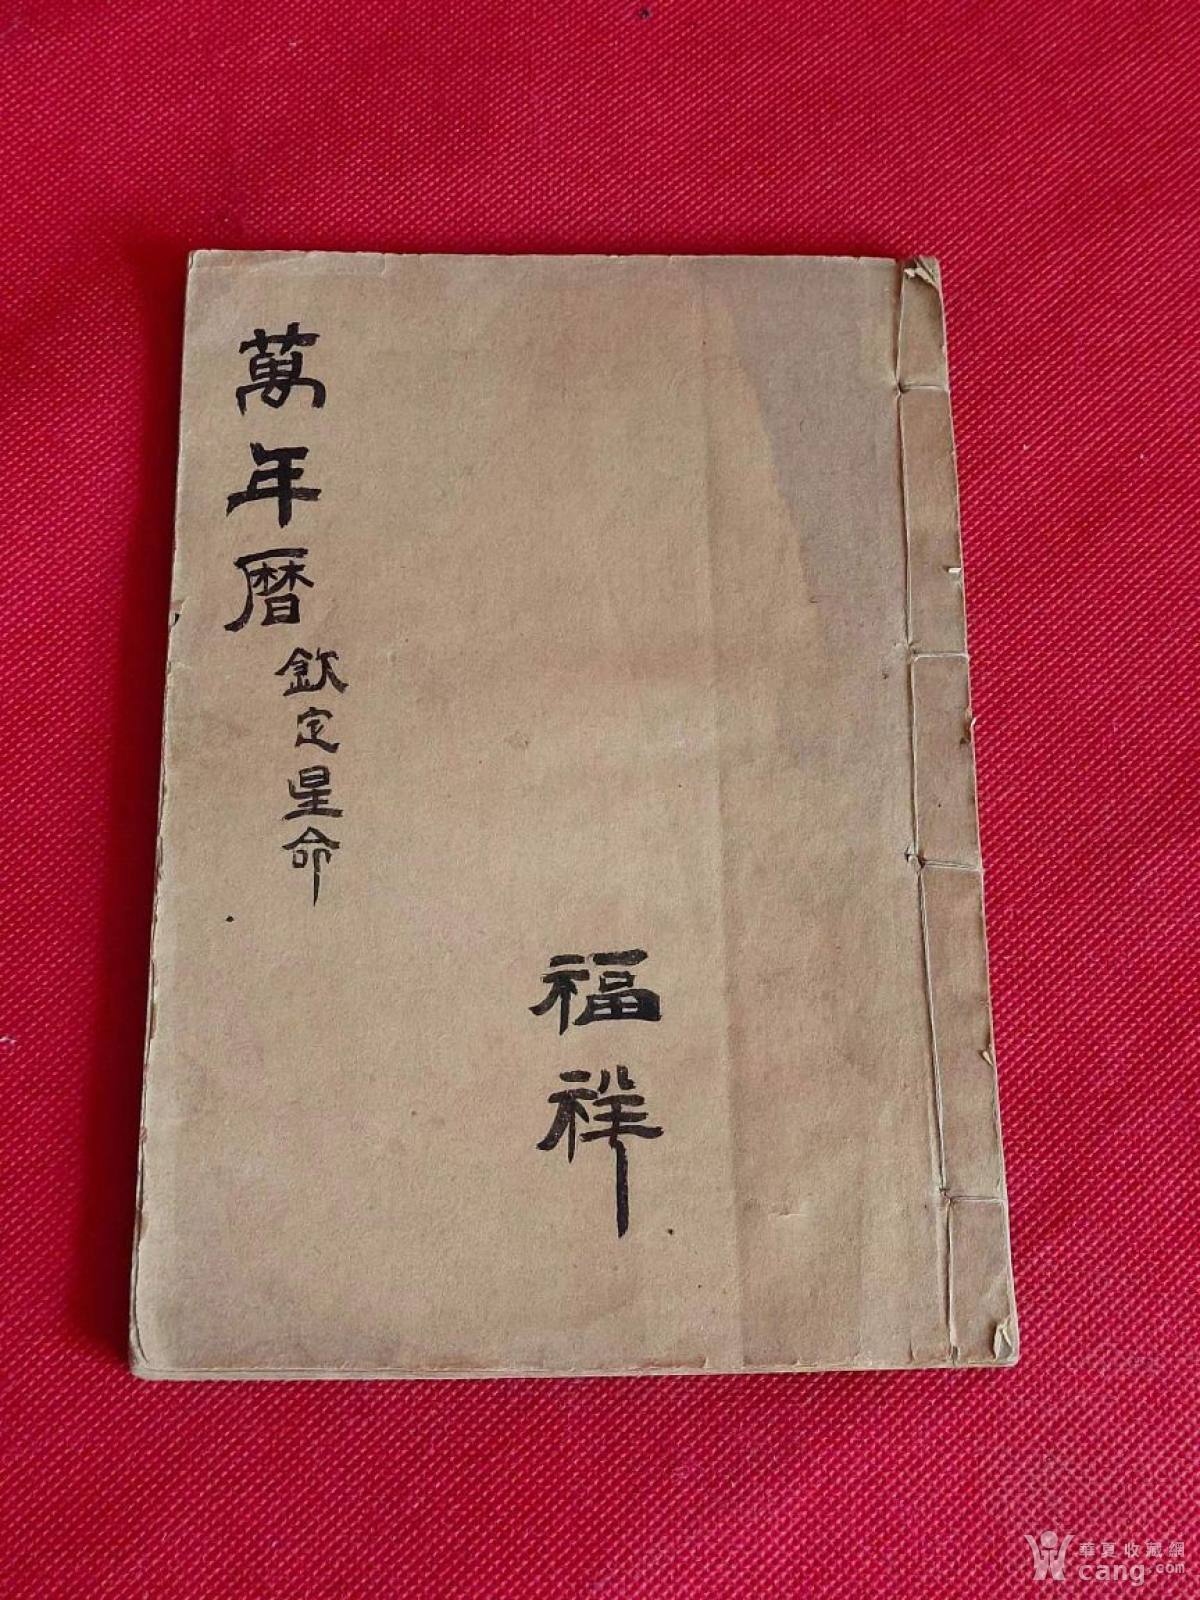 萬年曆
欽定星命
福祥
華夏收藏網
cang.com